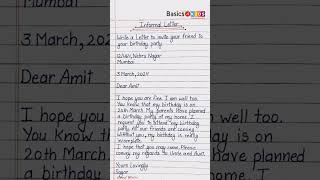 Basics4KIDS
Informal Letter
Write a Letter to invite your friend to
your birthday party.
Nehru Nagar
Mumbai
3 March, 2024
Dear Amit
I hope you are fine. I am well too.
You know that my birthday is on
20th March. My parents have planned
a birthday party at my home. I
request you to attend my birthday
party. All our friends are coming.
Without you, my birthday is really
incomplete.
I hope that you may come. Please
convey my regards to Uncle and Aunt.
Yours Lovingly
Sagar
Mumbai
3 March, 202
Dear Amit
I hope you
well too.
You know
day is on
20th March
planned
a birthday